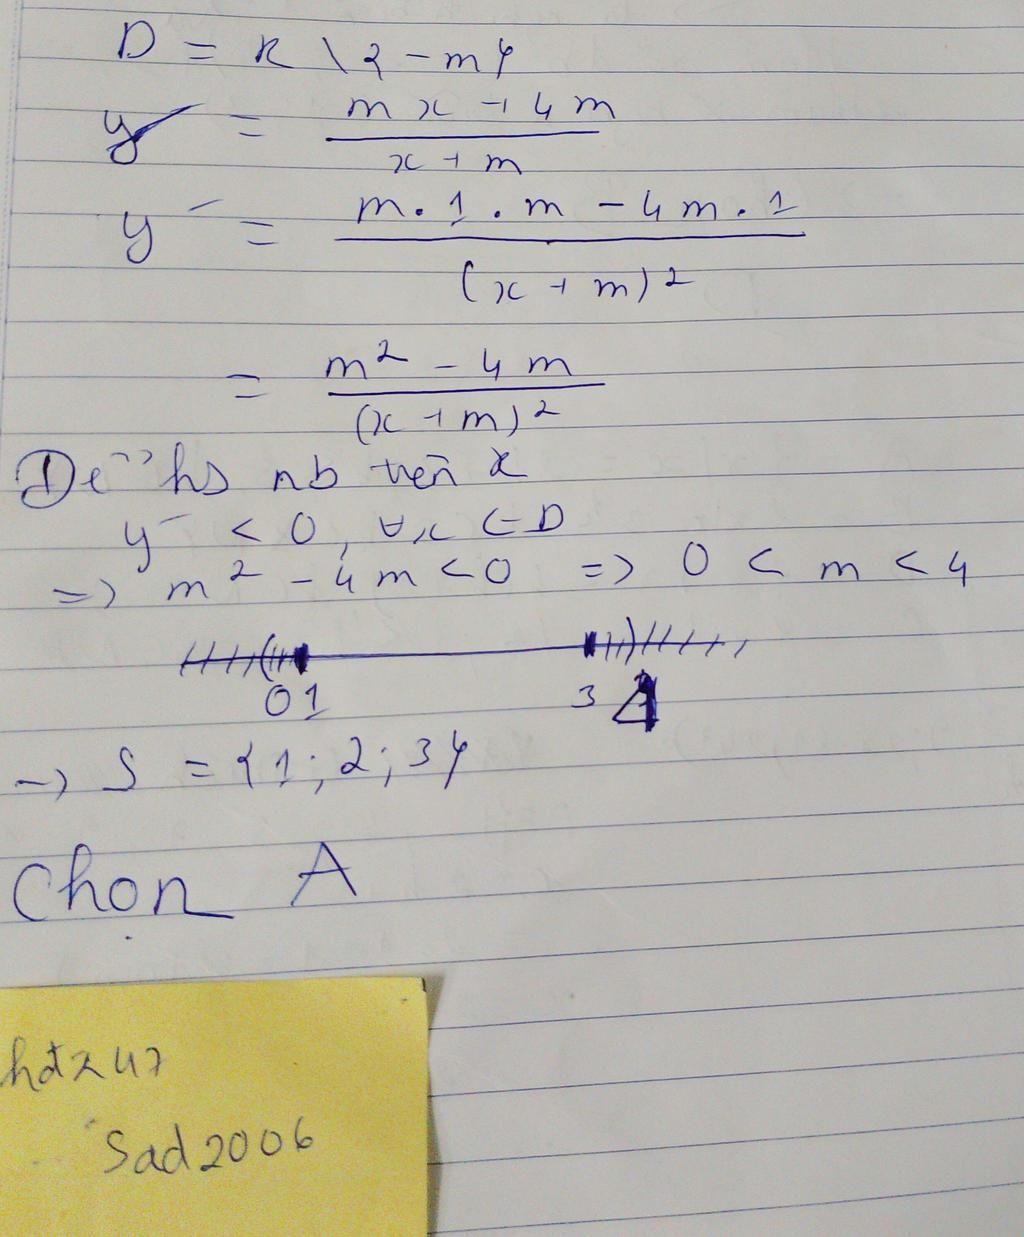 D = R \ {-m}
y = mx + 4m / x + m
y' = m.1.m - 4m.1 / (x + m)²
= m² - 4m / (x + m)²
Để hs nb trên x
y' < 0, ∀x ∈ D
=> m² - 4m < 0 => 0 < m < 4
0 1 3 4
-> S = {1; 2; 3}
Chọn A
Sad2006